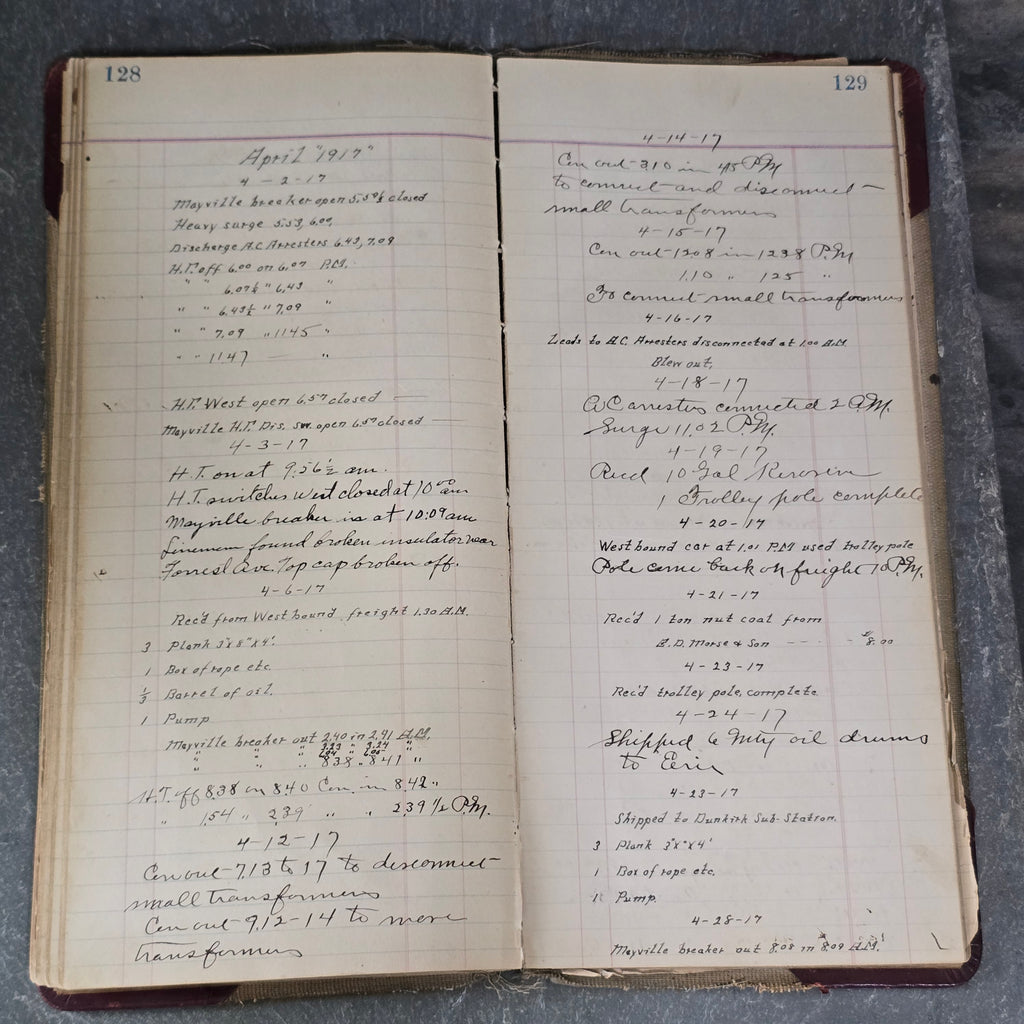 128
April "1917"
4-2-17
Mayville breaker open 5.5 closed
Heavy surge 5.53, 6.00,
Discharge A.C. Arresters 6.43, 7.09
H.T. off 6.00 on 6.07 P.M.
" " 6.07½ " 6.43 "
" " 6.43½ " 7.09 "
" " 7.09 " 1145 "
" " 1147 — "
H.T. West open 6.57 closed —
Mayville H.T. Dis. sw. open 6.57 closed —
4-3-17
H.T. on at 9:56½ am.
H.T. switches West closed at 10 00 am
Mayville breaker in at 10:09 am
Linemen found broken insulator near
Forrest Ave. Top cap broken off.
4-6-17
Rec'd from West bound freight 1.30 A.M.
3 Plank 3"x8"x4'.
1 Box of rope etc.
⅓ Barrel of oil.
1 Pump
Mayville breaker out 2.40 in 2.41 A.M.
" " " 3.23 " 3.24 "
" " " 6.04 " 6.05 "
" " " 8.38 " 8.41 "
H.T. off 8.38 on 8.40 Con. in 8.42 "
" 1.54 " 2.39 " " 2.39½ P.M.
4-12-17
Con out 7.13 to 17 to disconnect
small transformers
Con out 9,12-14 to move
transformers
129
4-14-17
Con out 310 in 415 P.M
to connect and disconnect
small transformers
4-15-17
Con out 1208 in 1238 P.M
1.10 " 125 "
To connect small transformers
4-16-17
Leads to A.C. Arresters disconnected at 1.00 A.M.
Blew out.
4-18-17
A.C. arrestes connected 2 A.M.
Surge 11.02 P.M.
4-19-17
Recd 10 Gal Kerosine
1 Trolley pole complete
4-20-17
West bound car at 1.01 P.M used trolley pole
Pole came back on freight 10 P.M.
4-21-17
Rec'd 1 ton nut coal from
E.D. Morse & Son - - - - $8.00
4-23-17
Rec'd trolley pole, complete
4-24-17
Shipped 6 Mty oil drums
to Erie
4-23-17
Shipped to Dunkirk Sub-Station.
3 Plank 3"x"x4'
1 Box of rope etc.
1 Pump.
4-28-17
Mayville breaker out 8.08 in 8.09 A.M.